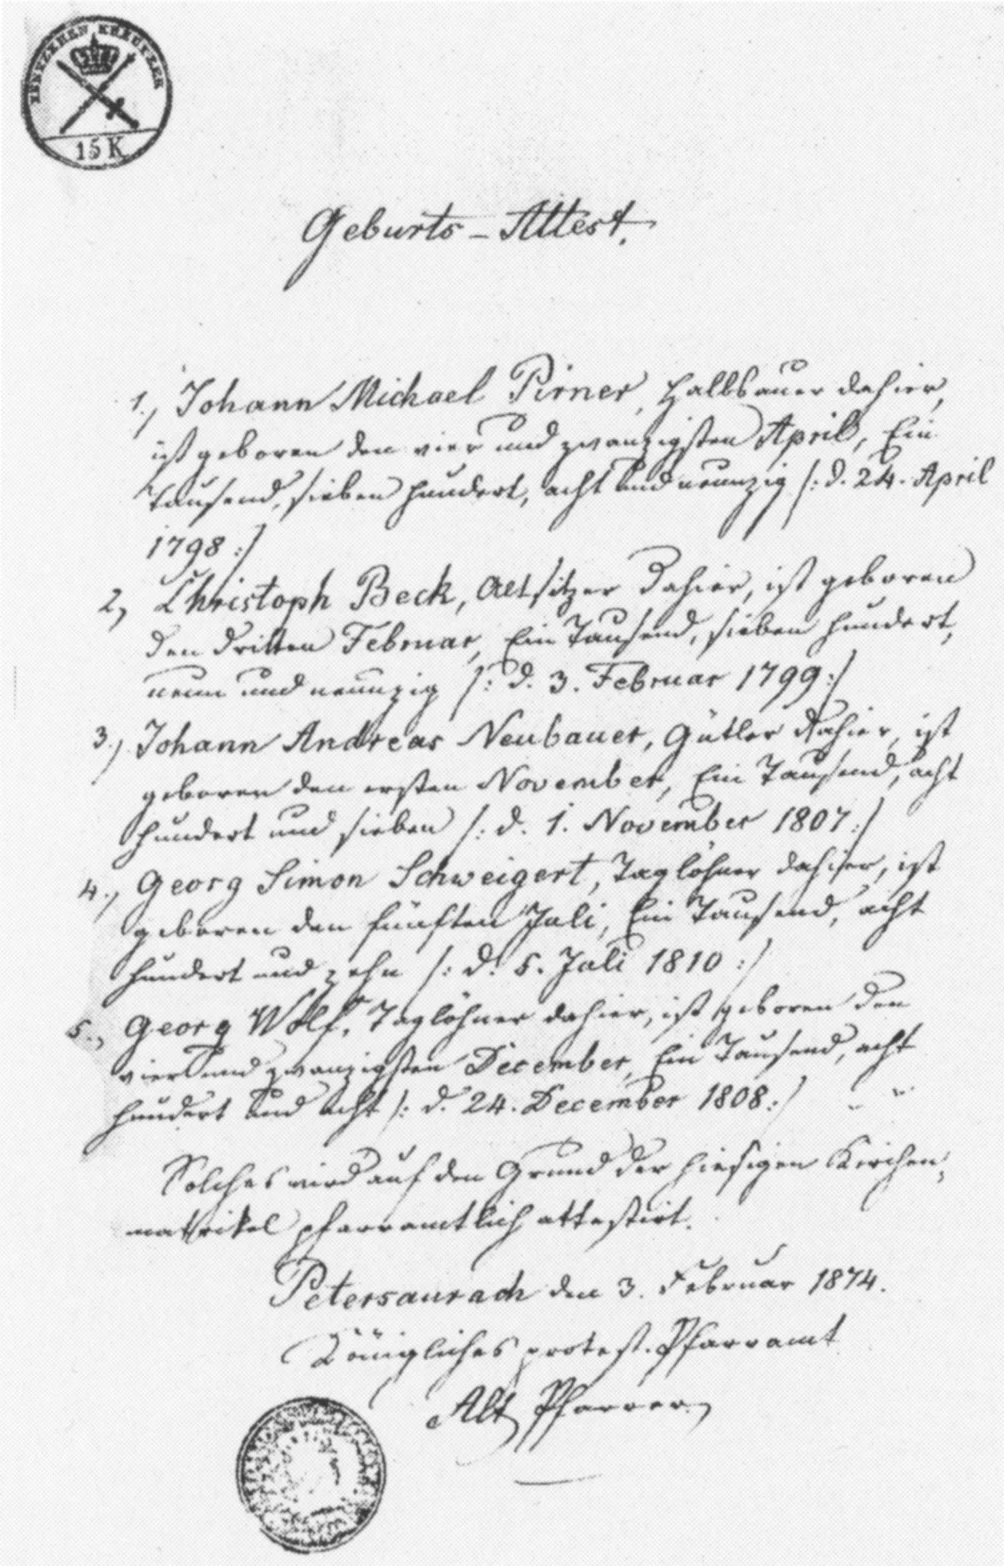 FÜNFZEHEN KREUTZER
15 K
Geburts-Attest.
1., Johann Michael Pirner, Halbbauer dahier,
ist geboren den vier und zwanzigsten April, Ein
Tausend, sieben hundert, acht und neunzig /: d. 24. April
1798 :/
2, Christoph Beck, Altsitzer dahier, ist geboren
den dritten Februar, Ein Tausend, sieben hundert,
neun und neunzig /: d. 3. Februar 1799 :/
3., Johann Andreas Neubauer, Gütler dahier, ist
geboren den ersten November, Ein Tausend, acht
hundert und sieben /: d. 1. November 1807 :/
4., Georg Simon Schweigert, Taglöhner dahier, ist
geboren den fünften Juli, Ein Tausend, acht
hundert und zehn /: d. 5. Juli 1810 :/
5., Georg Wolf, Taglöhner dahier, ist geboren den
vier und zwanzigsten December, Ein Tausend, acht
hundert und acht /: d. 24. December 1808 :/
Solches wird auf den Grund der hiesigen Kirchen-
matrikel pfarramtlich attestirt.
Petersaurach den 3. Februar 1874.
Königliches protest. Pfarramt
Alt Pfarrer